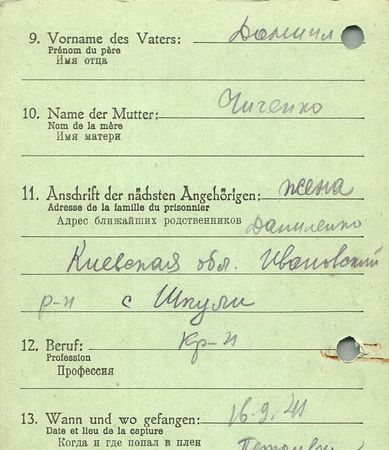 9. Vorname des Vaters: Даниил
Prénom du père
Имя отца
10. Name der Mutter: Чиченко
Nom de la mère
Имя матери
11. Anschrift der nächsten Angehörigen: жена
Adresse de la famille du prisonnier
Адрес ближайших родственников Даниленко
Киевская обл. Ивановский
р-н с Шкули
12. Beruf: Кр-н
Profession
Профессия
13. Wann und wo gefangen: 16.9.41
Date et lieu de la capture
Когда и где попал в плен